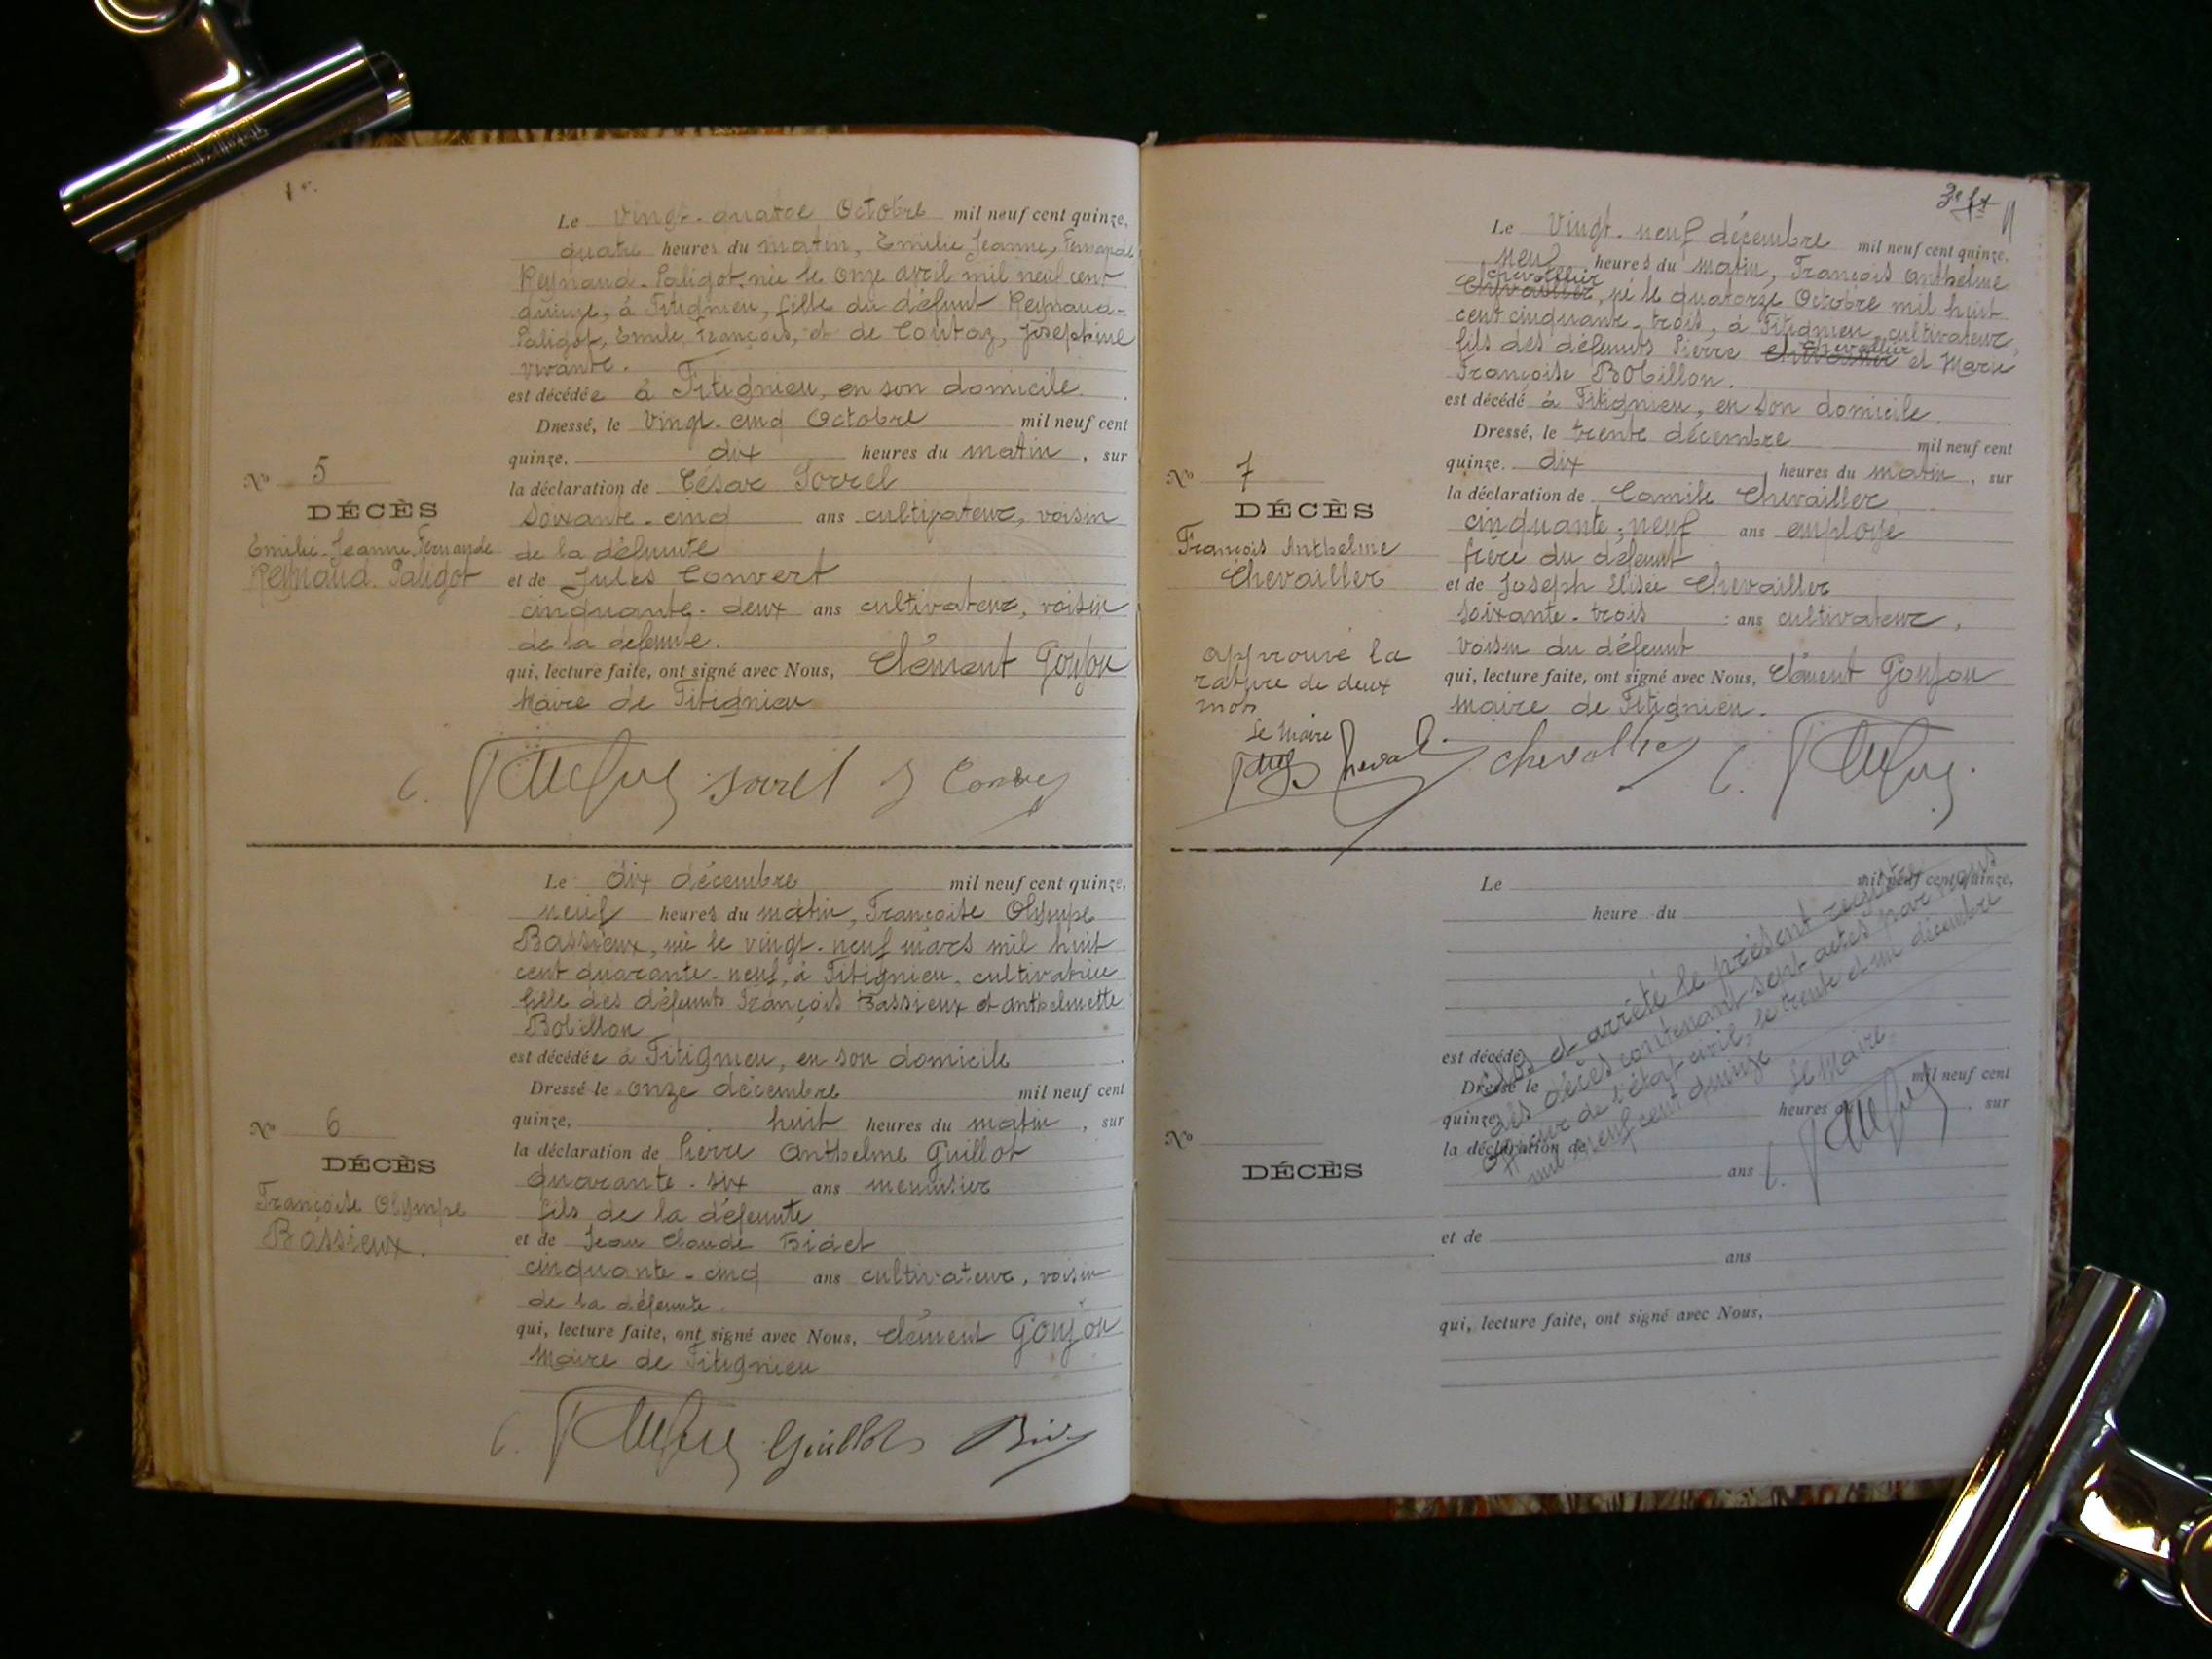 Le vingt-quatre Octobre mil neuf cent quinze,
quatre heures du matin, Emilie Jeanne, Fernande
Reynaud-Paligot, née le onze avril mil neuf cent
quinze, à Fitignieu, fille du défunt Reynaud-
Paligot, Emile François, et de Coutaz, Joséphine
vivante.
est décédée à Fitignieu, en son domicile.
Dressé, le vingt-cinq Octobre mil neuf cent
quinze, dix heures du matin, sur
la déclaration de César Sorrel
soixante-cinq ans cultivateur, voisin
de la défunte
et de Jules Convert
cinquante-deux ans cultivateur, voisin
de la défunte.
qui, lecture faite, ont signé avec Nous, Clément Goujon
Maire de Fitignieu
No 5
DÉCÈS
Emilie-Jeanne-Fernande
Reynaud-Paligot
C. Sorrel J
Le dix décembre mil neuf cent quinze,
neuf heures du matin, Françoise Olympe
Bassieux, née le vingt-neuf mars mil huit
cent quarante-neuf, à Fitignieu, cultivatrice
fille des défunts François Bassieux et Anthelmette
Bobillon
est décédée à Fitignieu, en son domicile
Dressé le onze décembre mil neuf cent
quinze, huit heures du matin, sur
la déclaration de Pierre Anthelme Guillot
quarante-six ans menuisier
fils de la défunte
et de Jean Claude Bidet
cinquante-cinq ans cultivateur, voisin
de la défunte.
qui, lecture faite, ont signé avec Nous, Clément Goujon
Maire de Fitignieu
No 6
DÉCÈS
Françoise Olympe
Bassieux.
C. Guillot
3e
Le vingt-neuf décembre mil neuf cent quinze,
neuf heures du matin, François Anthelme
Chevallier
Chevailler, né le quatorze Octobre mil huit
cent cinquante-trois, à Fitignieu, cultivateur,
Chevailler
fils des défunts Pierre Chevallier et Marie
Françoise Bobillon.
est décédé à Fitignieu, en son domicile.
Dressé, le trente décembre mil neuf cent
quinze, dix heures du matin, sur
la déclaration de Camile Chevailler
cinquante-neuf ans employé
frère du défunt
et de Joseph Elisée Chevailler
soixante-trois ans cultivateur,
voisin du défunt
qui, lecture faite, ont signé avec Nous, Clément Goujon
maire de Fitignieu.
No 7
DÉCÈS
François Anthelme
Chevailler
approuvé la
rature de deux
mots
Le Maire
Chevallier C.
Le mil neuf cent quinze,
heure du
est décédé
Dressé le mil neuf cent
quinze, heures du sur
la déclaration de
ans
et de
ans
qui, lecture faite, ont signé avec Nous,
No
DÉCÈS
Clos et arrêté le présent registre
des décès contenant sept actes par nous
officier de l'état civil, le trente et un décembre
mil neuf cent quinze
Le Maire,
C.